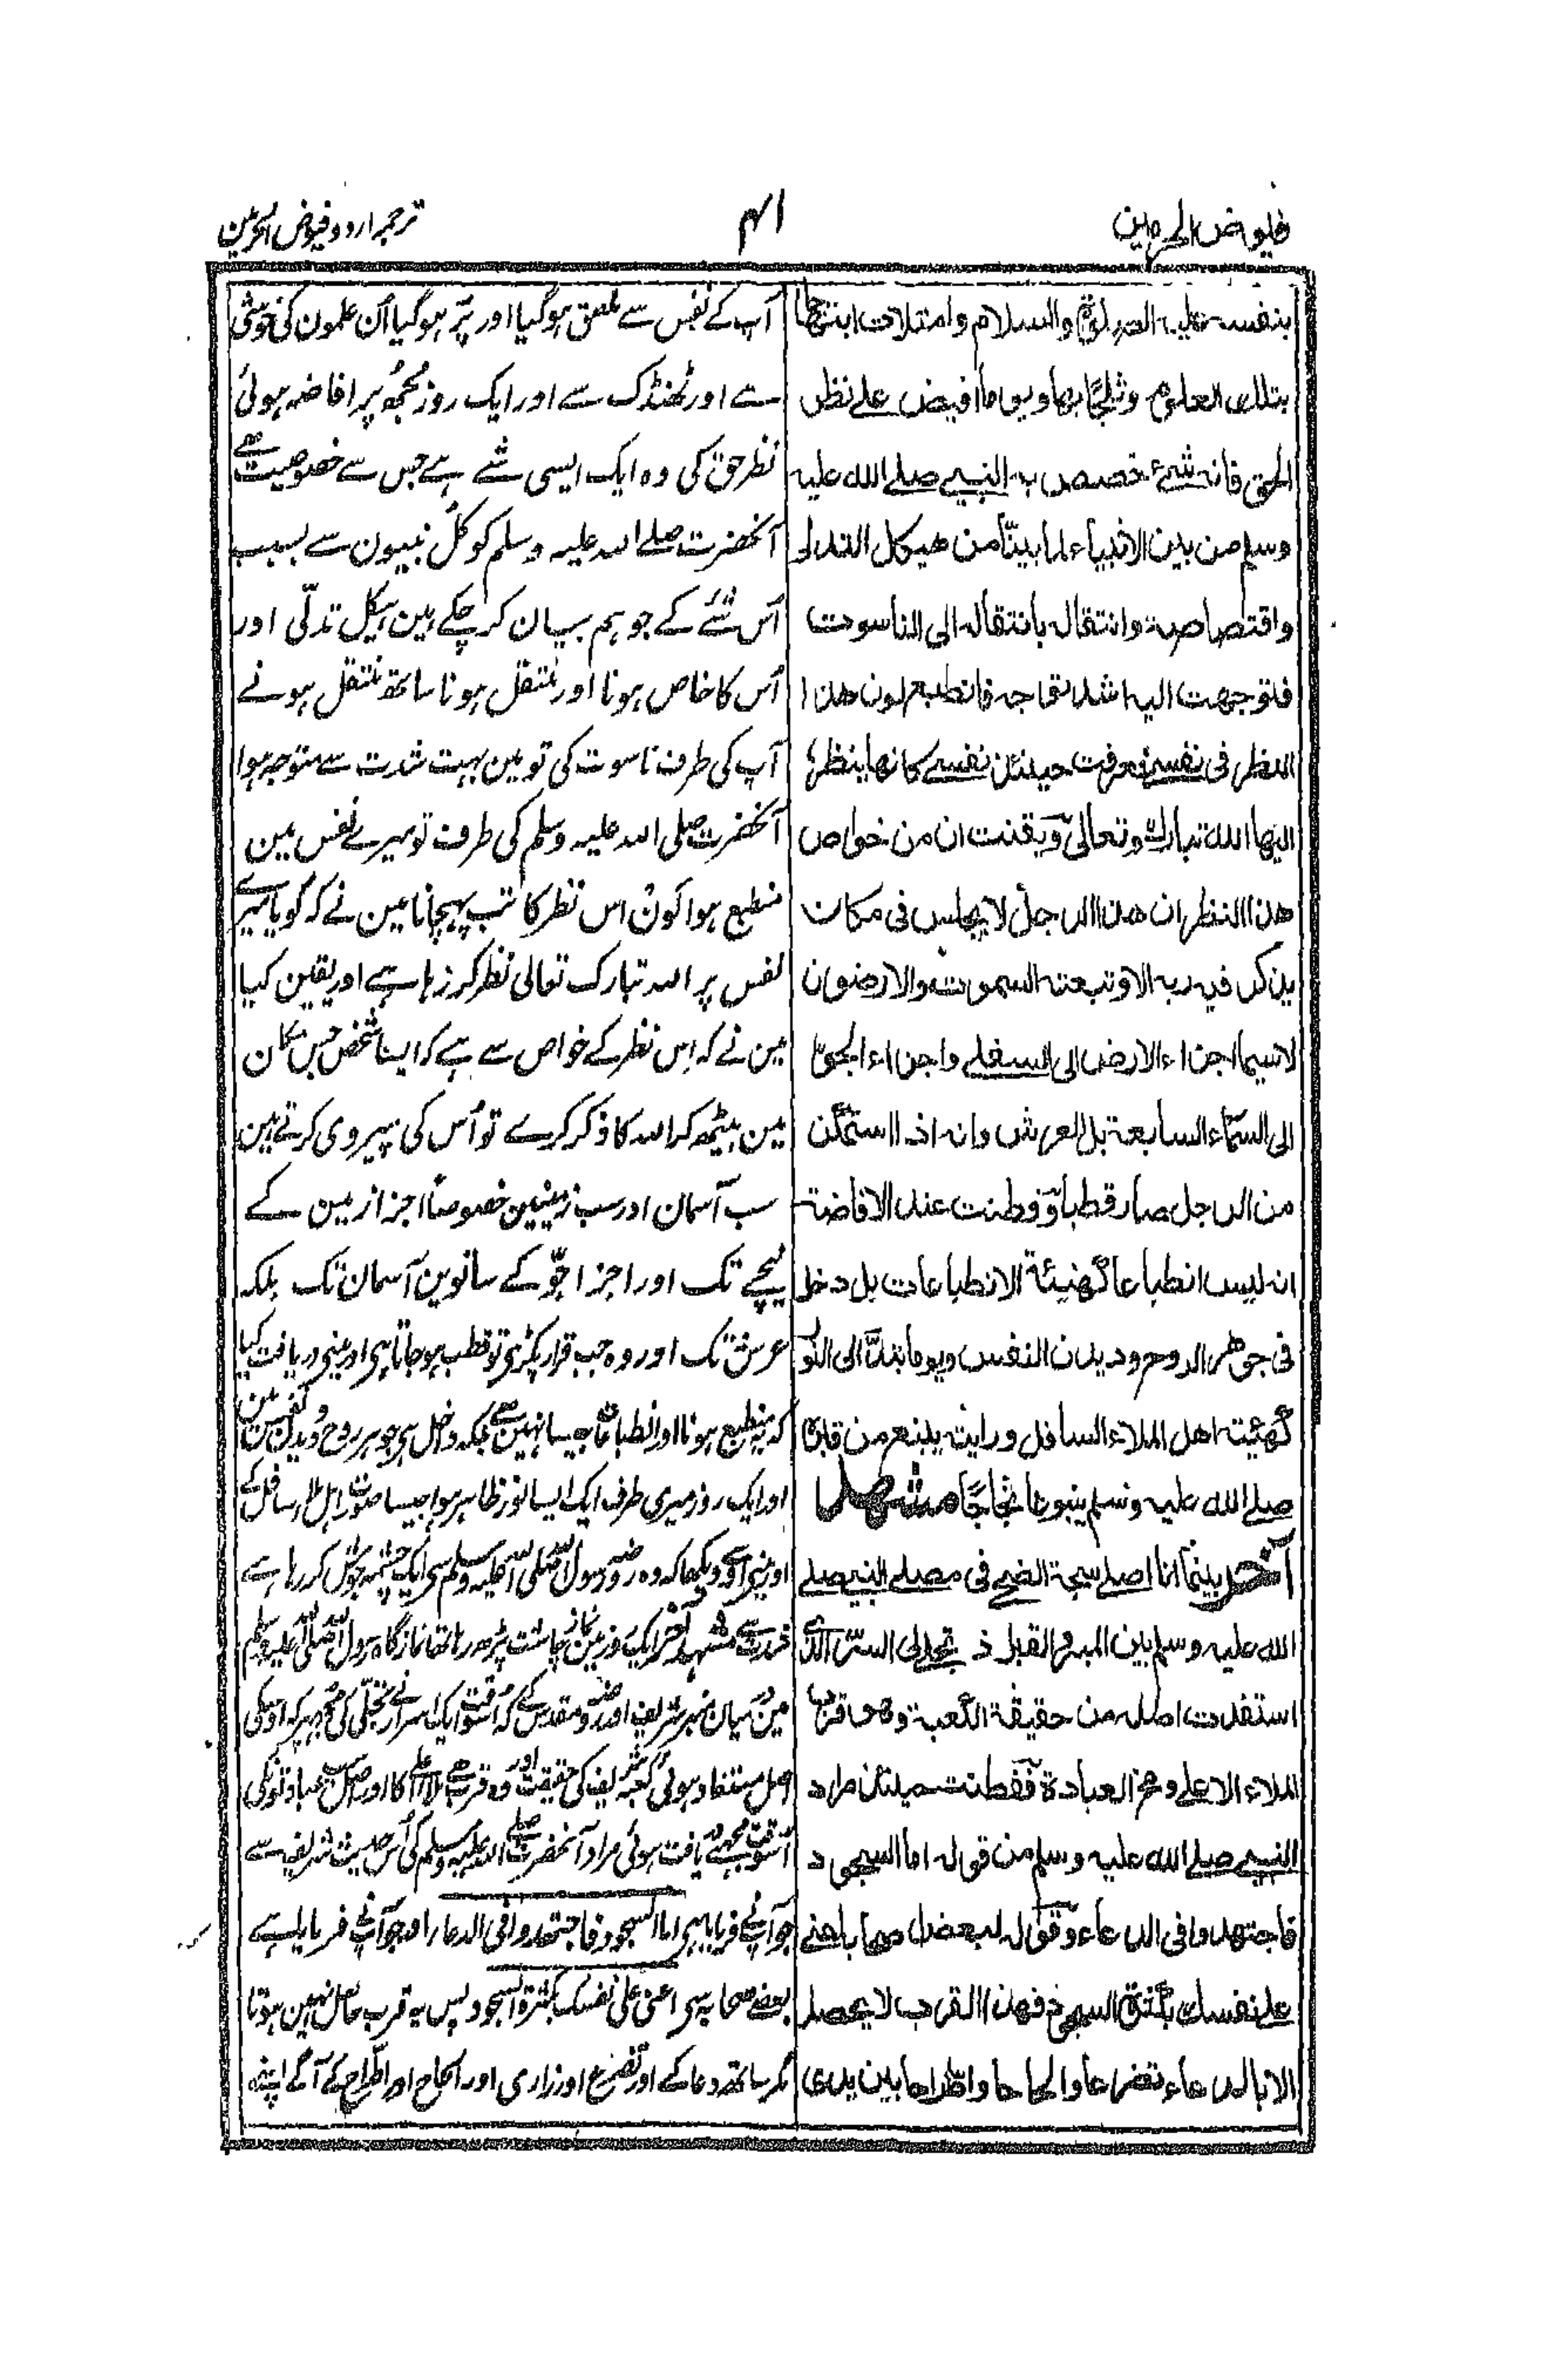 فيوض الحرمين
۴۱
ترجمہ اردو فیوض الحرمین
بنفسه عليه الصلوة والسلام وامتلات ابتهاجا
بتلك العلوم وثلجًا بها ويوما أفيض علے نظر
الحق فانه شئ خصص به النبي صلے الله عليه
وسلم من بين الانبياء لما بينّا من هيكل التدلى
واقتصاصه وانتقاله بانتقاله الى الناسوت
فتوجهت اليه اشد تجاجه فانطبع لون هذا
النظر فى نفسى فعرفت حينئذ نفسے كانها ينظر
اليها الله تبارك وتعالى وتيقنت ان من خواص
هذا النظر ان هذا الرجل لا يجلس فى مكان
يذكر فيه ربه الا وتبعته السموات والارضون
لاسيما اجزاء الارض الى السفلے واجزاء الجو
الى السماء السابعة بل العرش وانه اذا استمكن
من الرجل صار قطبا وفطنت عند الافاضة
انه ليس انطباعا كهيئة الانطباعات بل دخل
فى جوهر الروح وديدن النفس ويوما بدا الى النور
كهيئته اهل الملاء السافل ورايت ينبع من قبره
صلے الله عليه وسلم ينبوعا ثجاجا مشهد
آخر بينما انا اصلے سبحة الضحے فى مصلے النبي صلے
الله عليه وسلم بين المنبر والقبر اذ تجلى لى السر الذى
استفدت اصله من حقيقة الكعبة وهو قرب
الملاء الاعلے وهو العبادة ففطنت حينئذ مراد
النبي صلے الله عليه وسلم من قوله اما السجود
فاجتهدوا فى الدعاء وقوله لبعض اصحابه اعنے
علے نفسك بكثرة السجود فهذا القرب لا يحصل
الا بالدعاء تضرعا والحاحا واطراحا بين يدى
آپ کے نفس سے ملصق ہو گیا اور پُر ہو گیا اُن علمون کی خوشی
سے اور ٹھنڈک سے اور ایک روز مجھ پر افاضہ ہوئی
نظر حق کی وہ ایک ایسی شے ہے جس سے خصوصیت ہے
آنحضرت صلے اللہ علیہ وسلم کو کل نبیون سے بسبب
اُس شئے کے جو ہم بیان کر چکے ہین ہیکل تدلّی اور
اُس کا خاص ہونا اور منتقل ہونا ساتھ منتقل ہونے
آپ کی طرف ناسوت کی تو مین بہت شدت سے متوجہ ہوا
آنحضرت صلی اللہ علیہ وسلم کی طرف تو میرے نفس مین
منطبع ہوا لون اس نظر کا تب پہچانا مین نے کہ گویا میرے
نفس پر اللہ تبارک تعالی نظر کر رہا ہے اور یقین کیا
مین نے کہ اِس نظر کے خواص سے ہے کہ ایسا شخص جس مکان
مین بیٹھ کر اللہ کا ذکر کرے تو اُس کی پیروی کرتے ہین
سب آسمان اور سب زمینین خصوصًا اجزا زمین کے
نیچے تک اور اجزا جوّ کے ساتوین آسمان تک بلکہ
عرش تک اور وہ جب قرار پکڑے تو قطب ہو جاتا ہی اور مینے دریافت کیا
کہ یہ منطبع ہونا اور انطباعات جیسا نہین ہے بلکہ داخل ہی جوہر روح و دیدن نفس مین
اور ایک روز میری طرف ایک ایسا نور ظاہر ہوا جیسا صورت اہل ملاء سافل کے
اور مینے دیکھا کہ وہ روضہ رسول اللہ صلی اللہ علیہ وسلم سی ایک چشمہ جوش کر رہا ہے
مشہد آخر ایک روز مین نماز چاشت پڑھ رہا تھا نماز گاہ رسول اللہ صلی اللہ علیہ وسلم
مین درمیان منبر شریف اور روضہ مقدس کے کہ اُسوقت ایک اسرار نے تجلّی کی مجھ پر کہ اوسکی
اصل مستفاد ہوئی کعبہ شریف کی حقیقت اور وہ قرب ہے ملاء اعلی کا اور اصل سب عبادتونکی
اُسوقت مجھے دریافت ہوئی مراد آنحضرت صلے اللہ علیہ وسلم کی اُس حدیث شریف سے
جو آپنے فرمایا ہی اما السجود فاجتهدوا فی الدعاء اور جو آپنے فرمایا ہے
بعضے صحابہ سی اعنی علی نفسک بکثرة السجود پس یہ قرب حاصل نہین ہوتا
مگر ساتھ دعا کے اور تضرع اور زاری اور الحاح اور اطراح کے آگے اپنے